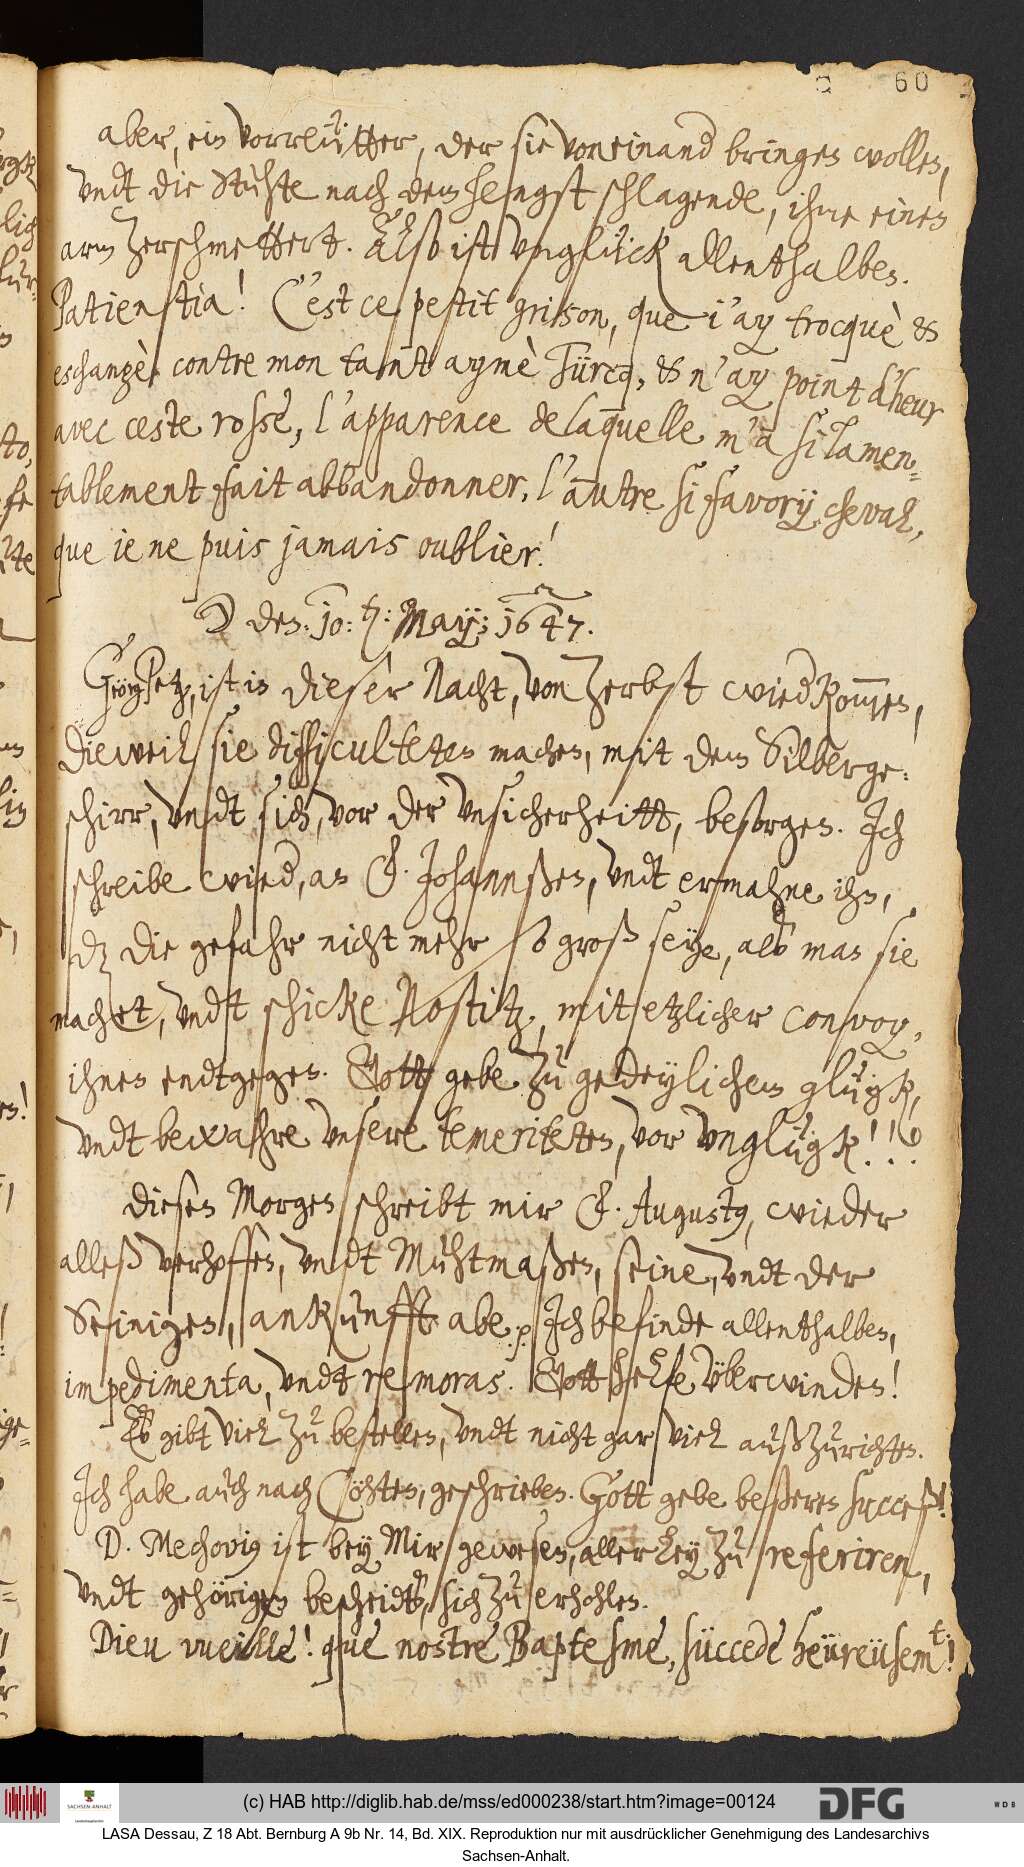 60
aber, ein vorreütter, der sie voneinand bringen wollen,
vndt die Stuhte nach dem hengst schlagende, ihme einen
arm zerschmettert. Also ist vnglück allenthalben.
Patientia! C'est ce pestit grison, que i'ay trocquè &
eschangè contre mon tant aymè Türcq, & n'ay point d'heur
avec ceste rosse, l'apparence de laquelle m'a si lamen-
tablement fait abbandonner, l'autre si favorÿ cheval,
que ie ne puis jamais oublier!
den: 10: May; 1647.
Geörg Petz, ist in dieser Nacht, von Zerbst wied kom̄en,
dieweil sie difficulteten machen, mit dem Silberge-
schirr, vndt sich, vor der vnsicherheitt, besorgen. Ich
schreibe wied, an F. Johannßen, vndt ermahne ihn,
dz die gefahr nicht mehr so groß seye, alß man sie
machet, vndt schicke Nostitz, mit etzlicher convoy,
ihnen endtgegen. Gott gebe zu gedeylichem glügk,
vndt bewahre vnsere temeriteten, vor vnglügk!!!
Diesen Morgen schreibt mir F. Augustus, wieder
alleß verhoffen, vndt Muhtmaßen, seine, vndt der
Seinigen, ankunfft abe. p Ich befinde allenthalben,
impedimenta, vndt remoras. Gott helfe vberwinden!
Eß gibt viel zu bestellen, vndt nicht gar viel außzurichten.
Ich habe auch nach Cöhten, geschrieben. Gott gebe beßeren succeß!
D. Mechovius ist bey Mir gewesen, allerley zu referiren,
vndt gehörigen bescheidts, sich zu erhohlen.
Dieu vueille! que nostre Baptesme, süccede heüreüsemt!
(c) HAB http://diglib.hab.de/mss/ed000238/start.htm?image=00124
SACHSEN-ANHALT
DFG
WDB
LASA Dessau, Z 18 Abt. Bernburg A 9b Nr. 14, Bd. XIX. Reproduktion nur mit ausdrücklicher Genehmigung des Landesarchivs
Sachsen-Anhalt.